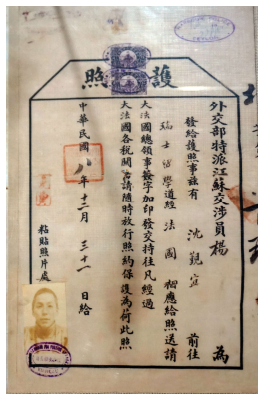 護照
外交部特派江蘇交涉員楊 為
發給護照事茲有 沈覲宜 前往
瑞士留學道經 法國 相應給照送請
大法國總領事簽字加印發交持往凡經過
大法國各稅關書請隨時放行照約保護為荷此照
中華民國 八 年 十二 月 三十一 日給
粘貼照片處